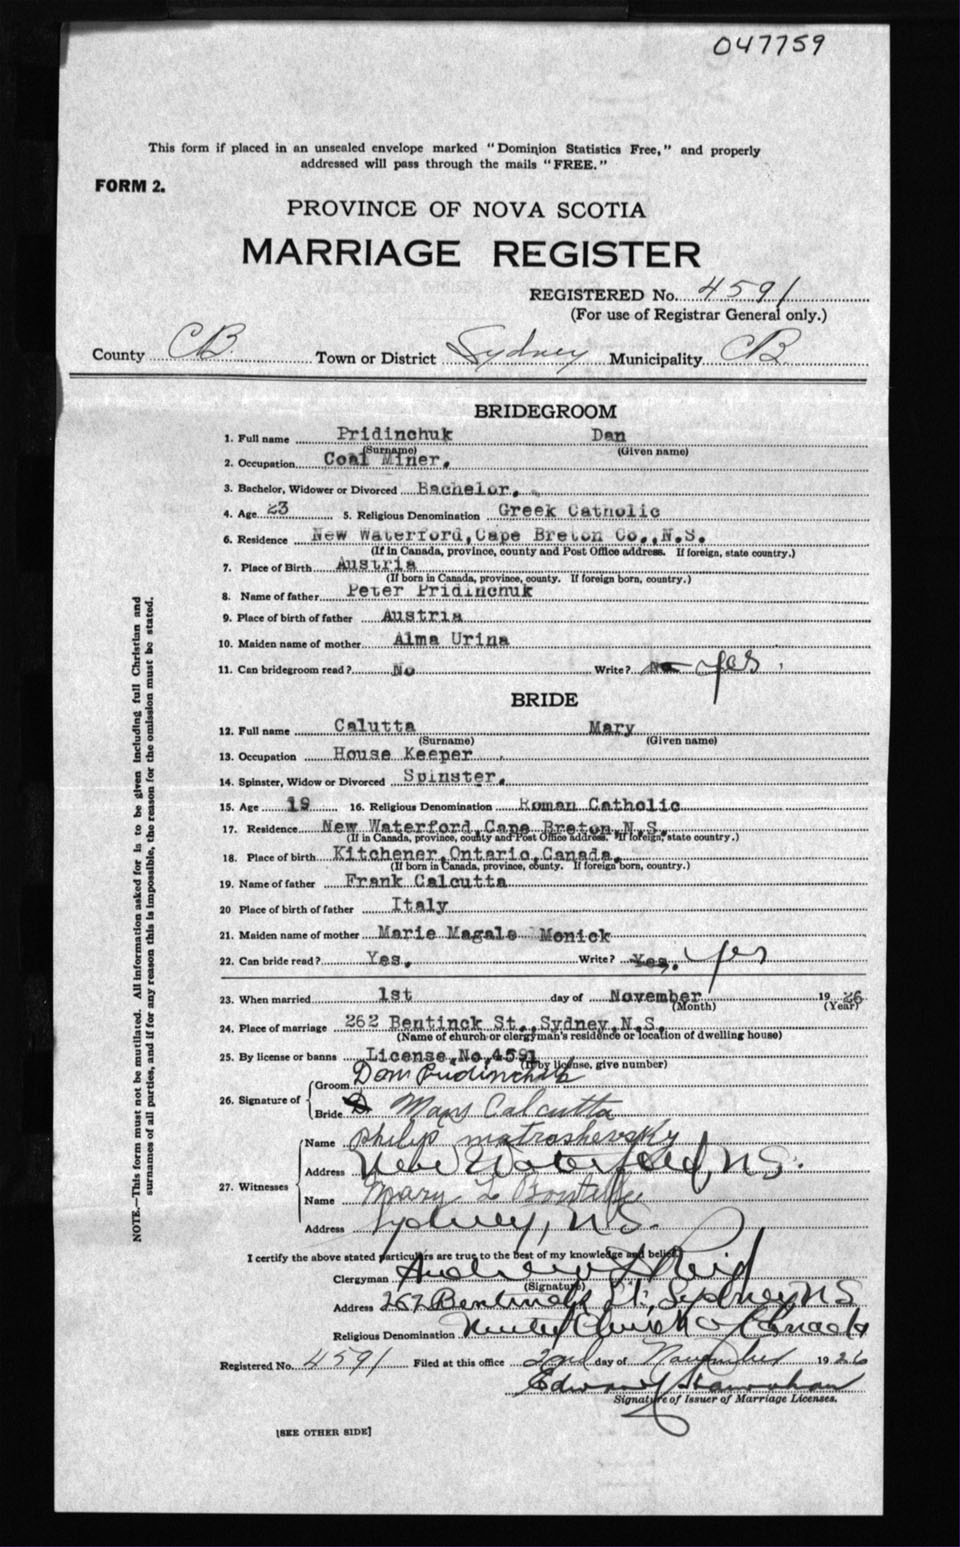 047759
This form if placed in an unsealed envelope marked "Dominion Statistics Free," and properly
addressed will pass through the mails "FREE."
FORM 2.
PROVINCE OF NOVA SCOTIA
MARRIAGE REGISTER
REGISTERED No. 4591
(For use of Registrar General only.)
County CB. Town or District Sydney Municipality CB
BRIDEGROOM
1. Full name Pridinchuk Dan
(Surname) (Given name)
2. Occupation Coal Miner.
3. Bachelor, Widower or Divorced Bachelor.
4. Age 23 5. Religious Denomination Greek Catholic
6. Residence New Waterford, Cape Breton Co., N.S.
(If in Canada, province, county and Post Office address. If foreign, state country.)
7. Place of Birth Austria
(If born in Canada, province, county. If foreign born, country.)
8. Name of father Peter Pridinchuk
9. Place of birth of father Austria
10. Maiden name of mother Alma Urina
11. Can bridegroom read? No Write? No yes
BRIDE
12. Full name Calutta Mary
(Surname) (Given name)
13. Occupation House Keeper
14. Spinster, Widow or Divorced Spinster.
15. Age 19 16. Religious Denomination Roman Catholic
17. Residence New Waterford, Cape Breton, N.S.
(If in Canada, province, county and Post Office address. If foreign, state country.)
18. Place of birth Kitchener, Ontario, Canada.
(If born in Canada, province, county. If foreign born, country.)
19. Name of father Frank Calcutta
20 Place of birth of father Italy
21. Maiden name of mother Marie Magale Monick
22. Can bride read? Yes. Write? Yes. yes
23. When married 1st day of November 1926
(Month) (Year)
24. Place of marriage 262 Bentinck St., Sydney, N.S.
(Name of church or clergyman's residence or location of dwelling house)
25. By license or banns License, No, 4591
(If by license, give number)
26. Signature of Groom Dam Pridinchuk
Bride D Mary Calcutta
27. Witnesses Name Philip matroshevsky
Address New Waterford, N.S.
Name Mary L
Address Sydney, N.S.
I certify the above stated particulars are true to the best of my knowledge and belief,
Clergyman Andrew Reid
(Signature)
Address 262 Bentinck St, Sydney NS
Religious Denomination United Church of Canada
Registered No. 4591 Filed at this office 2nd day of November 1926
Edward
Signature of Issuer of Marriage Licenses.
[SEE OTHER SIDE]
NOTE.—This form must not be mutilated. All information asked for is to be given including full Christian and
surnames of all parties, and if for any reason this is impossible, the reason for the omission must be stated.